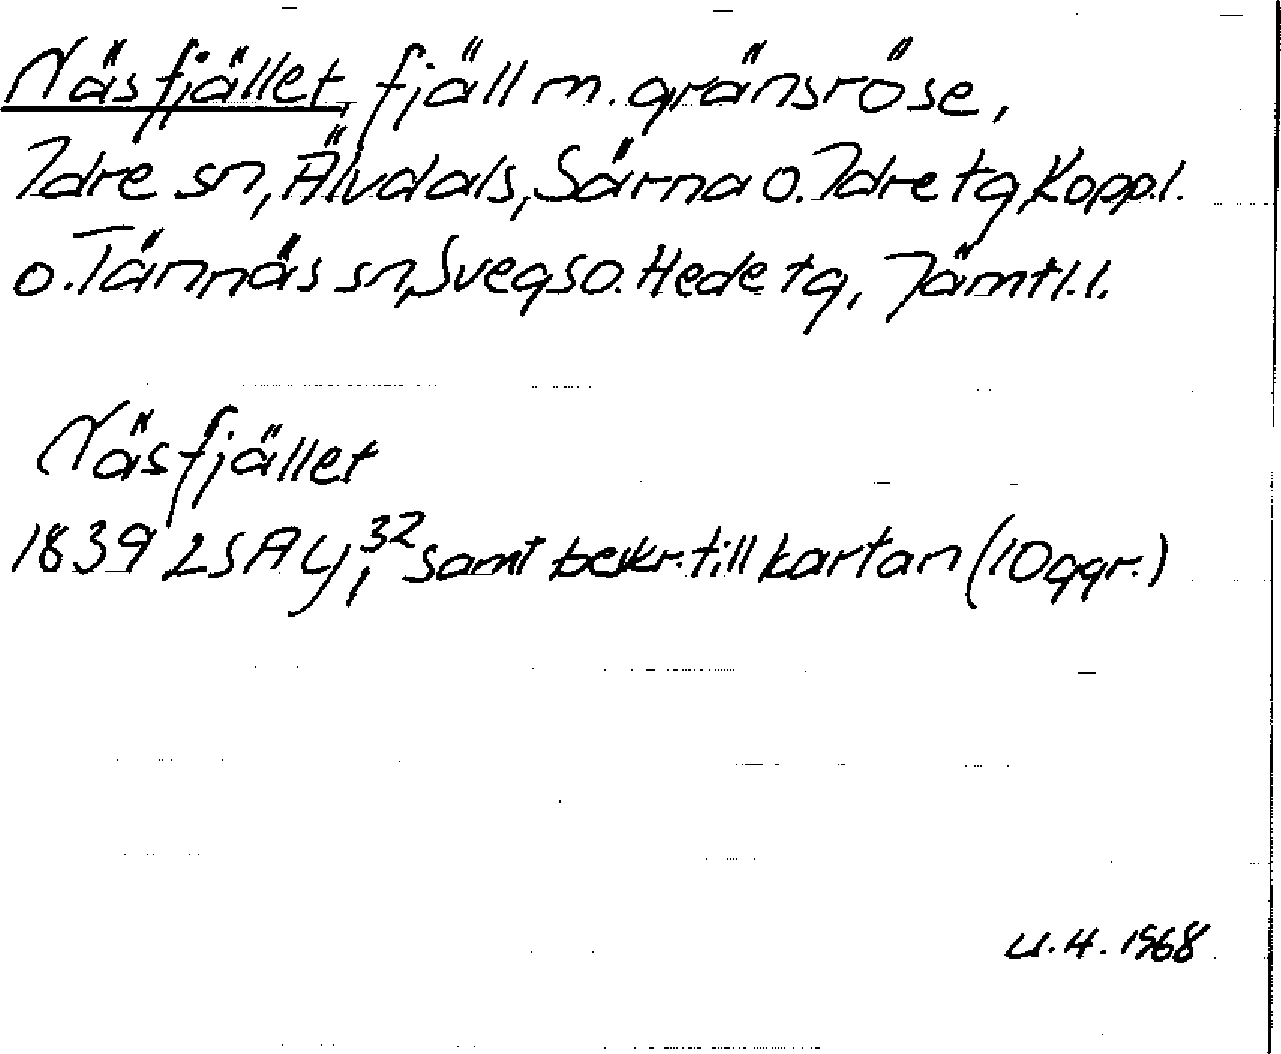 Näsfjället, fjäll m. gränsröse,
Idre sn, Älvdals, Särna o. Idre tg, Kopp.l.
o. Tännäs sn, Svegs o. Hede tg, Jämtl.l.
Näsfjället
1839 LSA Y, 32 samt beskr. till kartan (10 ggr.)
U.H. 1968